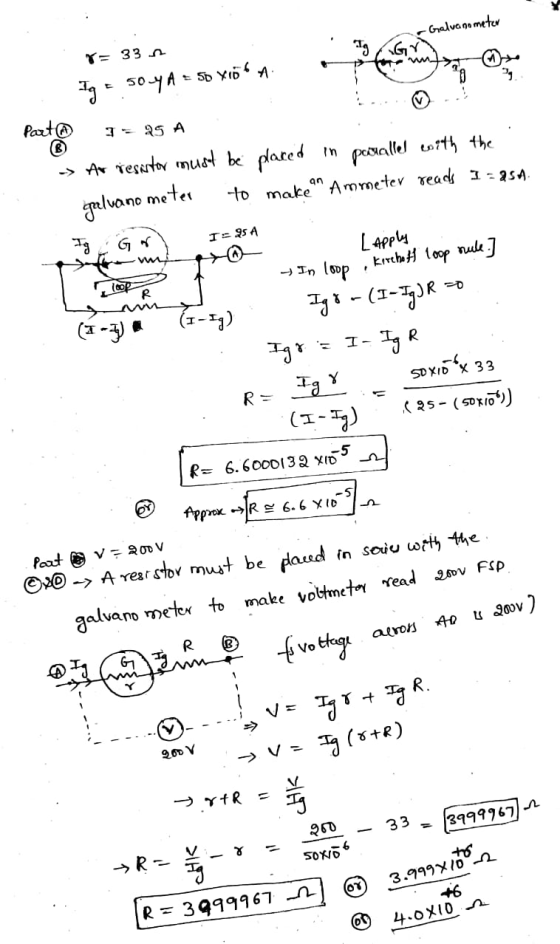 Galvanometer
r = 33 Ω
Ig = 50 μA = 50 × 10⁻⁶ A.
Ig G r Ig A Ig
V
Part A I = 25 A
B
→ A resistor must be placed in parallel with the
galvanometer to make an Ammeter reads I = 25A.
Ig G r I = 25 A A
loop
R
(I - Ig) (I - Ig)
[Apply
→ In loop, Kirchoff loop rule]
Ig r - (I - Ig) R = 0
Ig r = I - Ig R
R = Ig r / (I - Ig) = 50×10⁻⁶ × 33 / (25 - (50×10⁻⁶))
R = 6.6000132 × 10⁻⁵ Ω
or Approx → R ≅ 6.6 × 10⁻⁵ Ω
Part V = 200V
C & D → A resistor must be placed in series with the
galvanometer to make voltmeter read 200V FSD
{voltage across AB is 200V}
A Ig G Ig R B
r
V
200 V
⇒ V = Ig r + Ig R.
→ V = Ig (r + R)
→ r + R = V / Ig
→ R = V / Ig - r = 200 / 50×10⁻⁶ - 33 = 3999967 Ω
R = 3999967 Ω or 3.999×10⁺⁶ Ω
or 4.0×10⁺⁶ Ω